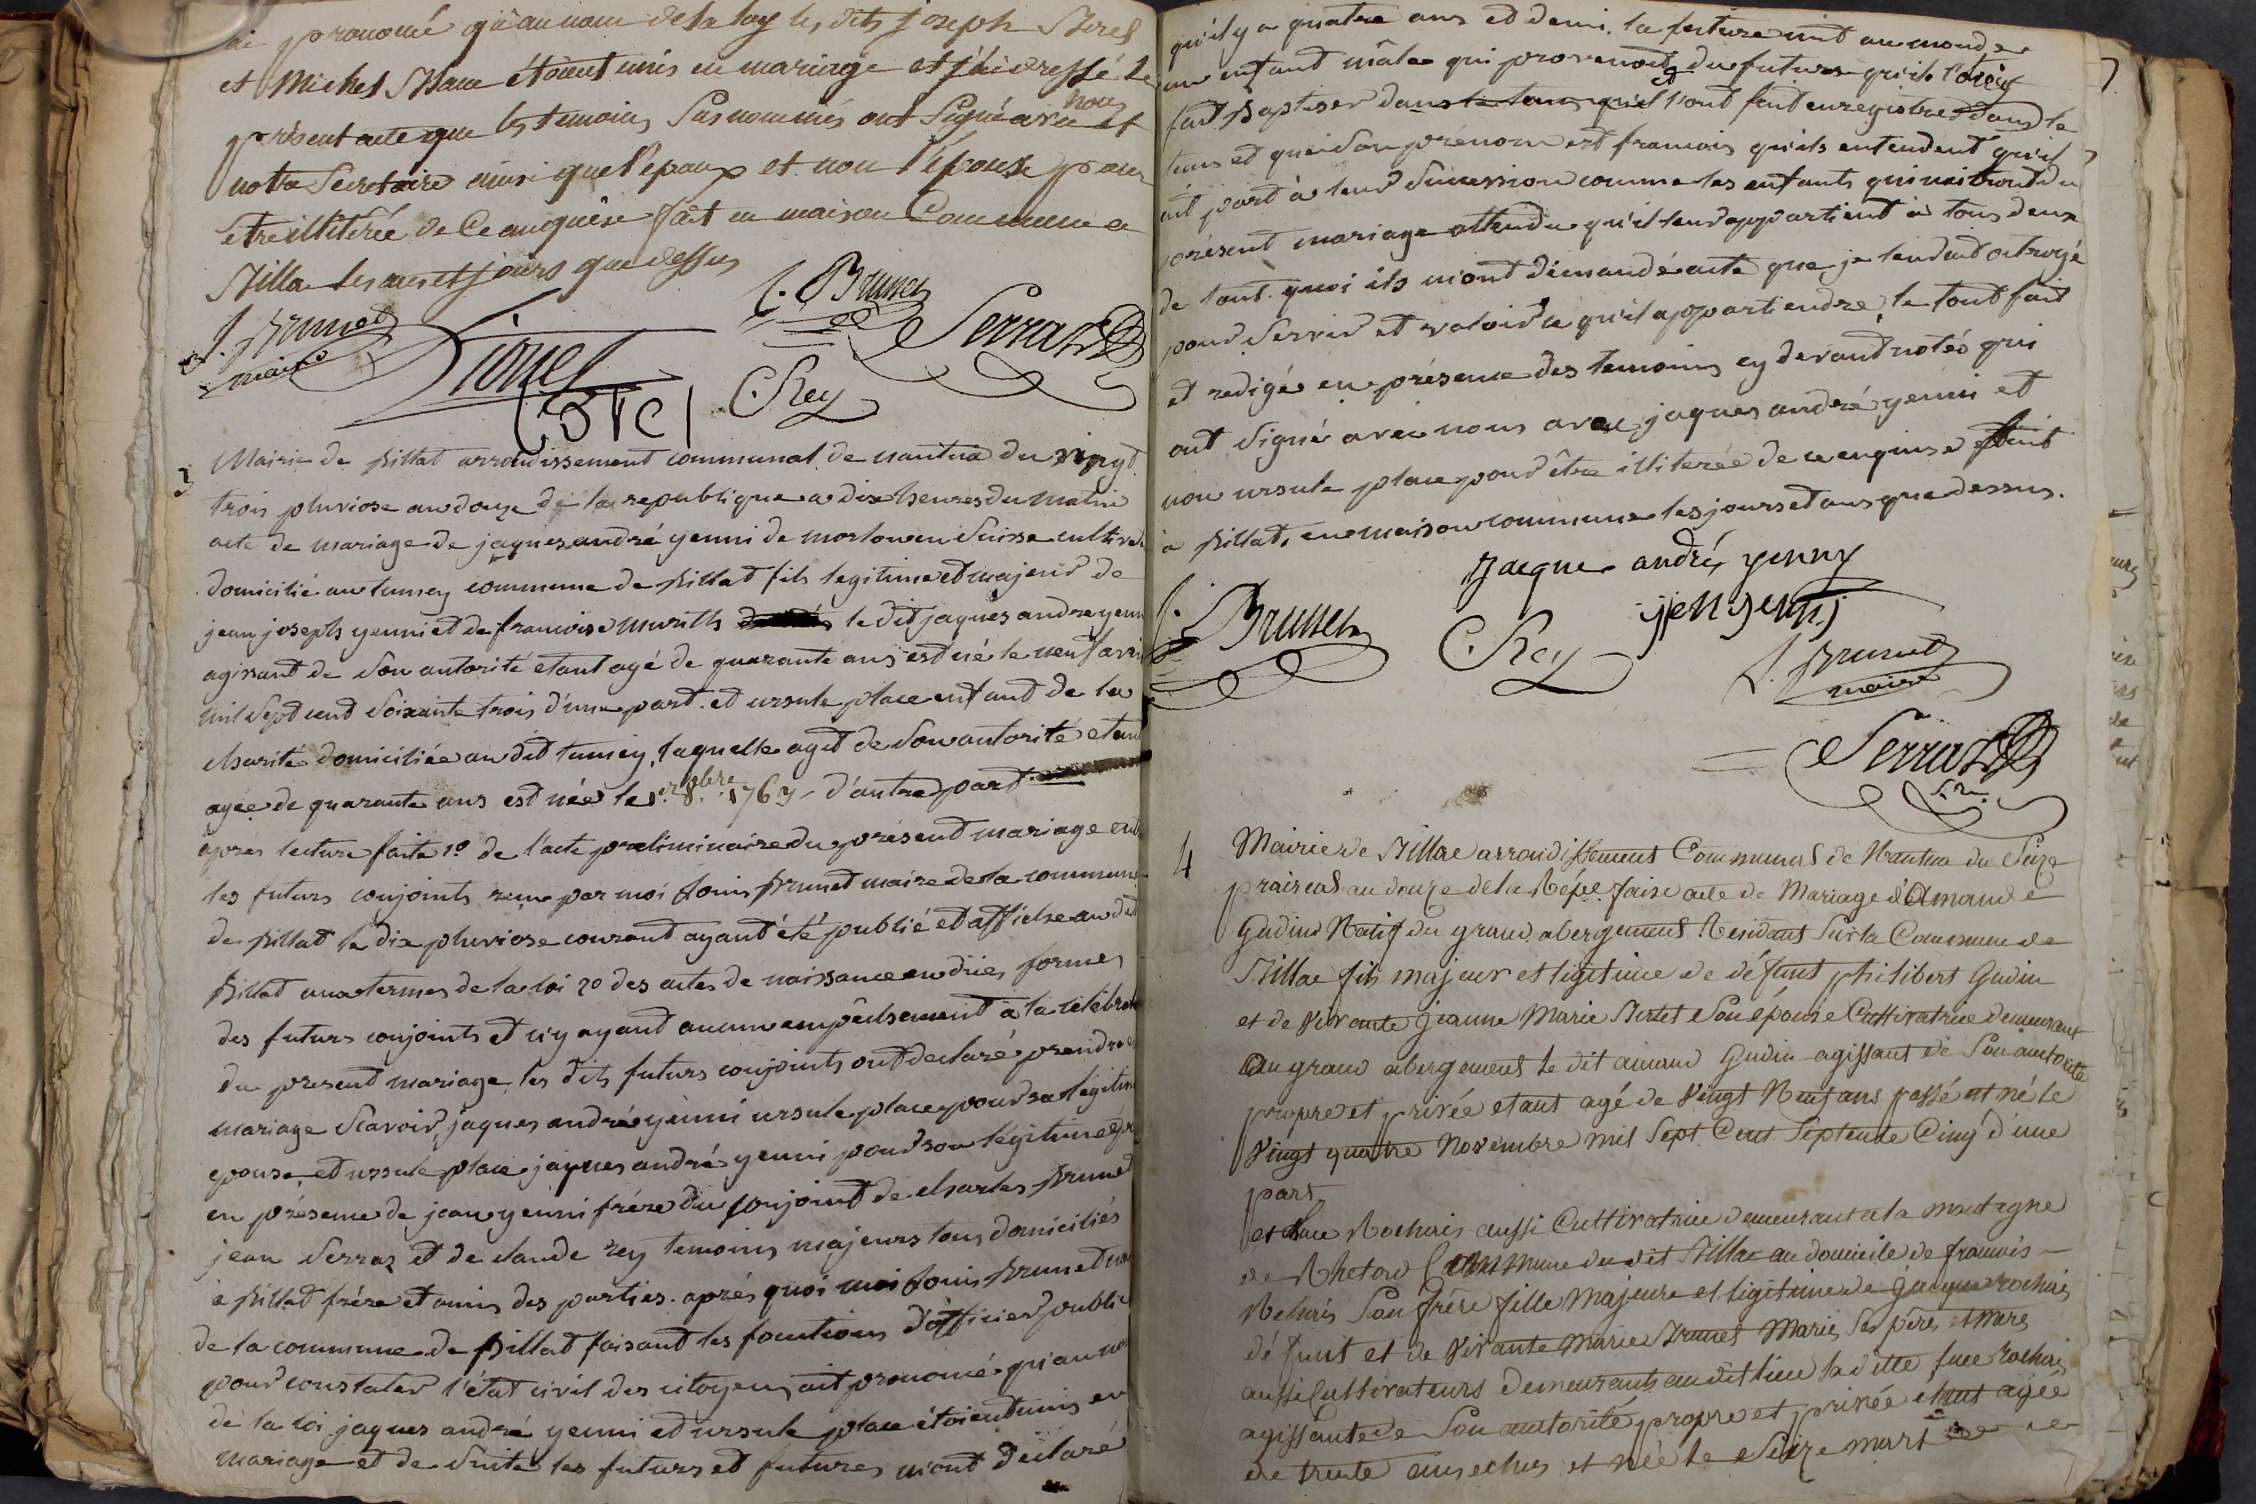 ai prononcé qu'au nom de la loy les dits joseph
et Michel étoient unis en mariage et j'ai dressé le
présent acte que les temoins susnommés ont signé avec nous et
notre Secretaire ainsi que l'epoux et non l'épouse pour
etre illitérée de ce enquise fait en maison Commune a
Billa les ans et jours que dessus
J. Brunet
maire
C. Brunet
Serraz
C. Rey
3
Mairie de Billat arrondissement communal de nantua du vingt
trois pluviose an douze de la republique a dix heures du matin
acte de mariage de jaques andré yenni de morlon en Suisse cultiva
domicilié au tumey commune de Billat fils legitime et majeur de
jean joseph yenni et de francoise murith le dit jaques andre yenni
agissant de son autorité etant agé de quarante ans est né le neuf avri
mil sept cent soixante trois d'une part. et ursule place enfant de la
charité domiciliée au dit tumey, laquelle agit de son autorité etant
agée de quarante ans est née le 1er 8bre 1763 d'autre part
apres lecture faite 1º de l'acte preliminaire du présent mariage entre
les futurs conjoints reçu par moi Louis Brunet maire de la commune
de Billat le dix pluviose courant ayant été publié et affiché au dit
Billat aux termes de la loi 2º des actes de naissance en dües formes
des futurs conjoints et n'y ayant aucun empêchement à la celebra
du present mariage, les dits futurs conjoints ont declaré prendre en
mariage Scavoir, jaques andré yenni ursule place pour sa légitime
epouse, et ursule place jaques andré yenni pour son légitime ép
en présence de jean yenni frére du conjoint de charles Brunet
jean Serraz et de claude rey temoins majeurs tous domiciliés
à Billat frére et amis des parties. aprés quoi moi Louis Brunet
de la commune de Billat faisant les fonctions d'officier public
pour constater l'état civil des citoyens, ait prononcé qu'au nom
de la loi jaques andré yenni et ursule place étoient unis en
mariage et de suite les futurs et futures m'ont déclaré
7
qu'il y a quatre ans et demi. la future mit au monde
un enfant mâle qui provenoit du futur qu'ils l'ont
fait Baptiser et l'ont fait enregistrer dans le
tems et que son prénom est francois qu'ils entendent qu'il
ait part à leur Succession comme les enfants qui naitront du
présent mariage attendu qu'il leur appartient à tous deux
de tout quoi ils m'ont demandé acte que je leur ait octroyé
pour servir et valoir ce qu'il appartiendra, le tout fait
et redigé en présence des temoins cy devant notés qui
ont signé avec nous avec jaques andré yenni et
non ursule place pour être illiterée de ce enquise fait
à Billat, en maison commune les jours et ans que dessus.
Jacque andré yenny
C. Brunet
C. Rey
jen jenny
L. Brunet
maire
Serraz
4
Mairie de Billac arrondissement Communal de Nantua du Seize
prairéal an douze de la Répe. faise acte de Mariage d'Amand
Gudin Natif du grand abergement Residant sur la Commune de
Billac fils majeur et legitime de défunt philibert Gudin
et de vivante jeanne Marie son épouse Cultivatrice demeurant
au grand abergement le dit amand Gudin agissant de son autorité
propre et privée etant agé de vingt Neuf ans passé et né le
vingt quatre Novembre mil Sept Cent Septente Cinq d'une
part
et Luce Rochais aussi Cultivatrice demeurant a la montagne
de Rhetord Commune du dit Billac au domicile de francois
Rochais son frère fille majeure et ligetime de jacque rochais
défunt et de vivante Marie Brunet Mariés ses pères et mères
aussi Cultivateurs demeurants au dit lieu la ditte Luce rochais
agissante de Son autorité propre et privée etant agée
de trente ans echus et née le Seize mars